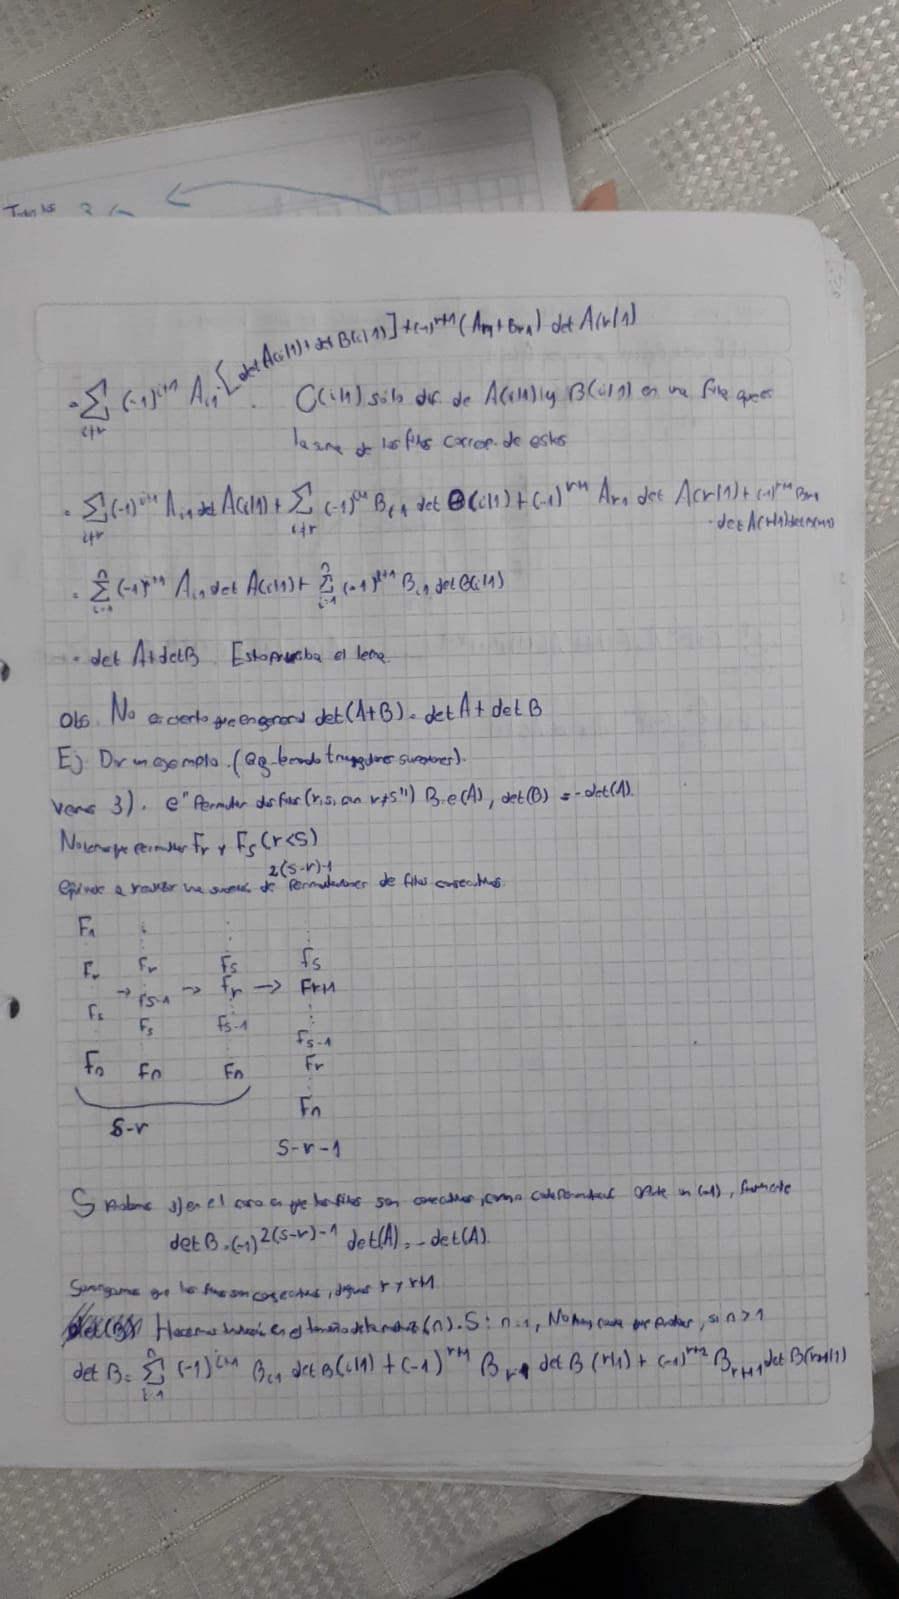 = ∑_{i≠r} (-1)^{i+1} A_{i1} [det A(i|1) + det B(i|1)] + (-1)^{r+1} (A_{r1} + B_{r1}) det A(r|1)
C(i|1) sólo dif. de A(i|1) y B(i|1) en una fila que es
la suma de las filas corresp. de estos
= ∑_{i≠r} (-1)^{i+1} A_{i1} det A(i|1) + ∑_{i≠r} (-1)^{i+1} B_{i1} det B(i|1) + (-1)^{r+1} A_{r1} det A(r|1) + (-1)^{r+1} B_{r1}
· det A(r|1)
= ∑_{i=1}^{n} (-1)^{i+1} A_{i1} det A(i|1) + ∑_{i=1}^{n} (-1)^{i+1} B_{i1} det B(i|1)
= det A + det B Esto prueba el lema
Obs. No es cierto que en general det(A+B) = det A + det B
Ej Dar un ejemplo. (triangulares superiores).
Veamos 3). e "Permutar dos filas (r, s, con r≠s)" B = e(A), det(B) = -det(A).
permutar Fr y Fs (r<s)
2(s-r)-1
Equivale a realizar una sucesión de permutaciones de filas consecutivas
F1 ⋮ ⋮ ⋮
Fr Fr Fs Fs
→ Fs-1 → Fr → Fr+1
Fs Fs Fs-1 ⋮
Fs-1
Fn Fn Fn Fr
⋮
Fn
s-r
s-r-1
Si probamos 3) en el caso en que las filas son consecutivas, como cada permutación aporta un (-1), finalmente
det B = (-1)^{2(s-r)-1} det(A) = -det(A).
Supongamos que las filas son consecutivas, digamos r y r+1
Hacemos inducción en el tamaño de la matriz (n). Si n=1, No hay nada que probar, si n>1
det B = ∑_{i=1}^{n} (-1)^{i+1} B_{i1} det B(i|1) + (-1)^{r+1} B_{r1} det B(r|1) + (-1)^{r+2} B_{r+1 1} det B(r+1|1)